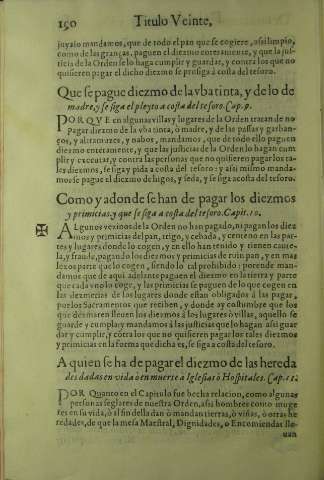 150 Titulo Veinte,
juyzio mandamos, que de todo el pan que se cogiere, assi limpio,
como de las granças, paguen el diezmo enteramente, y que la jus-
ticia de la Orden se lo haga cumplir y guardar, y contra los que no
quisieren pagar el dicho diezmo se prosiga à costa del tesoro.
Que se pague diezmo de la vba tinta, y de lo de
madre, y se siga el pleyto a costa del tesoro. Cap. 9.
PORQVE en algunas villas y lugares de la Orden tratan de no
pagar diezmo de la vba tinta, ò madre, y de las passas y garban-
ços, y altramuzes, y nabos, mandamos, que de todo ello paguen
diezmo enteramente, y que las justicias de la Orden lo hagan cum
plir y executar, y contra las personas que no quisieren pagar los ta-
les diezmos, se siga y pida a costa del tesoro: y assi mismo manda-
mos se pague el diezmo de higos, y seda, y se siga à costa del tesoro.
Como y adonde se han de pagar los diezmos
y primicias, y que se siga a costa del tesoro. Capit. 10.
ALgunos vezinos de la Orden no han pagado, ni pagan los diez
mos y primicias del pan, trigo, y cebada, y centeno en las par-
tes y lugares donde lo cogen, y en ello han tenido y tienen caute-
la, y fraude, pagando los diezmos y primicias de ruin pan, y en mas
lexos parte que lo cogen, siendo lo tal prohibido: porende man-
damos que de aqui adelante paguen el diezmo en la tierra y parte
que cada vno lo coge, y las primicias se paguen de lo que cogen en
las dezmerias de los lugares donde estan obligados à las pagar,
por los Sacramentos que reciben, y donde ay costumbre que los
que desmaren lleuen los diezmos à los lugares ò villas, aquello se
guarde y cumpla: y mandamos à las justicias que lo hagan assi guar
dar y cumplir, y cõtra los que no quisieren pagar los tales diezmos
y primicias en la forma que dicha es, se siga a costa del tesoro.
A quien se ha de pagar el diezmo de las hereda
des dadas en vida ò en muerte à Iglesias ò Hospitales. Cap. 11.
POR Quanto en el Capitulo fue hecha relacion, como algunas
personas seglares de nuestra Orden, assi hombres como muge
res en su vida, ò al fin della dan ò mandan tierras, ò viñas, ò otras he
redades, de que la mesa Maestral, Dignidades, ò Encomiendas lle-
uan